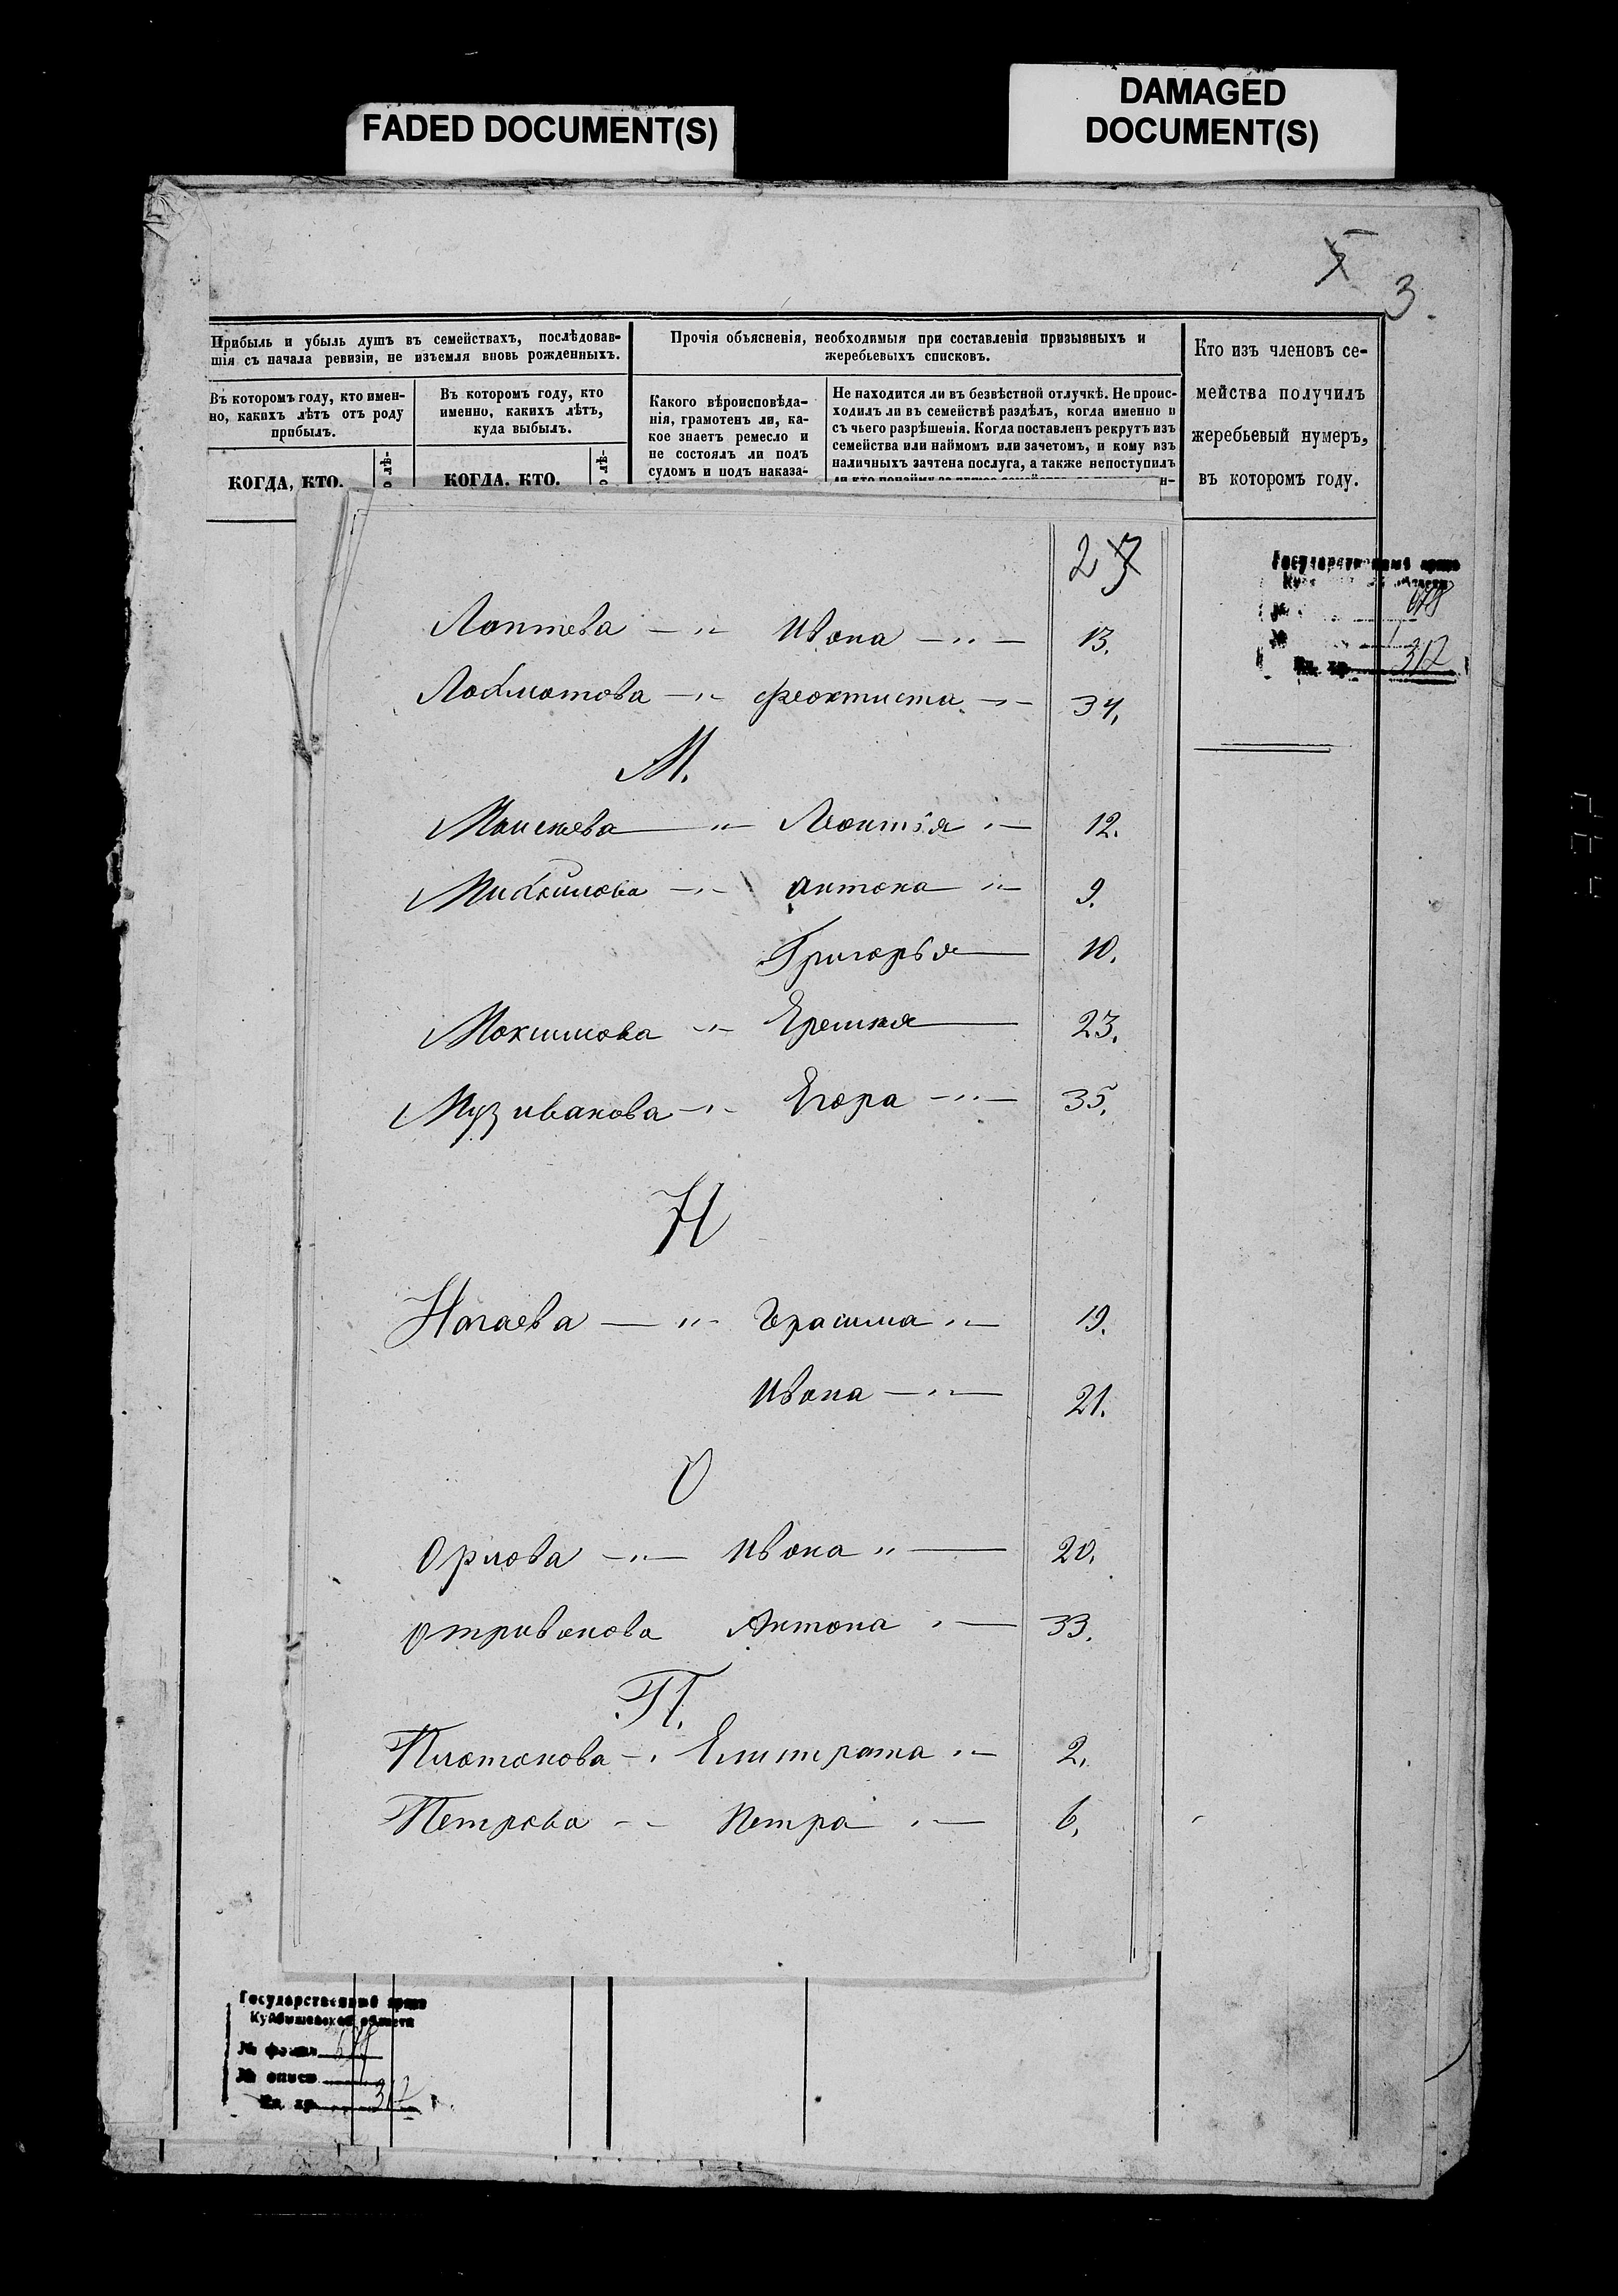 FADED DOCUMENT(S)
DAMAGED
DOCUMENT(S)
5
3.
Прибыль и убыль душъ въ семействахъ, послѣдовав-
шія съ начала ревизіи, не изъемля вновь рожденныхъ.
Въ которомъ году, кто имен-
но, какихъ лѣтъ отъ роду
прибылъ.
КОГДА, КТО.
о лѣ-
Въ которомъ году, кто
именно, какихъ лѣтъ,
куда выбылъ.
КОГДА. КТО.
о лѣ-
Прочія объясненія, необходимыя при составленіи призывныхъ и
жеребьевыхъ списковъ.
Какого вѣроисповѣда-
нія, грамотенъ ли, ка-
кое знаетъ ремесло и
не состоялъ ли подъ
судомъ и подъ наказа-
Не находится ли въ безвѣстной отлучкѣ. Не проис-
ходилъ ли въ семействѣ раздѣлъ, когда именно и
съ чьего разрѣшенія. Когда поставленъ рекрутъ изъ
семейства или наймомъ или зачетомъ, и кому изъ
наличныхъ зачтена послуга, а также непоступилъ
Кто изъ членовъ се-
мейства получилъ
жеребьевый нумеръ,
въ которомъ году.
2
Лаптева — „ Ивана — „ — 13.
Лохматова — „ Феоктиста — „ — 34.
М.
Моисеева — „ Леонтія „ — 12.
Михайлова — „ Антона „ — 9.
Григорья — 10.
Максимова — „ Еремея — 23.
Музиванова — „ Егора — „ — 35.
Н
Нагаева — „ Герасима „ — 19.
Ивана — „ — 21.
О
Орлова — „ — Ивана „ — 20.
Отриванова Антона „ — 33.
П.
Платонова — „ Елистрата „ — 2.
Петрова — „ Петра „ — 6.
Государственный архив
312
Государственный архив
Куйбышевской области
№ фонда
№ описи
Ед. хр. 312